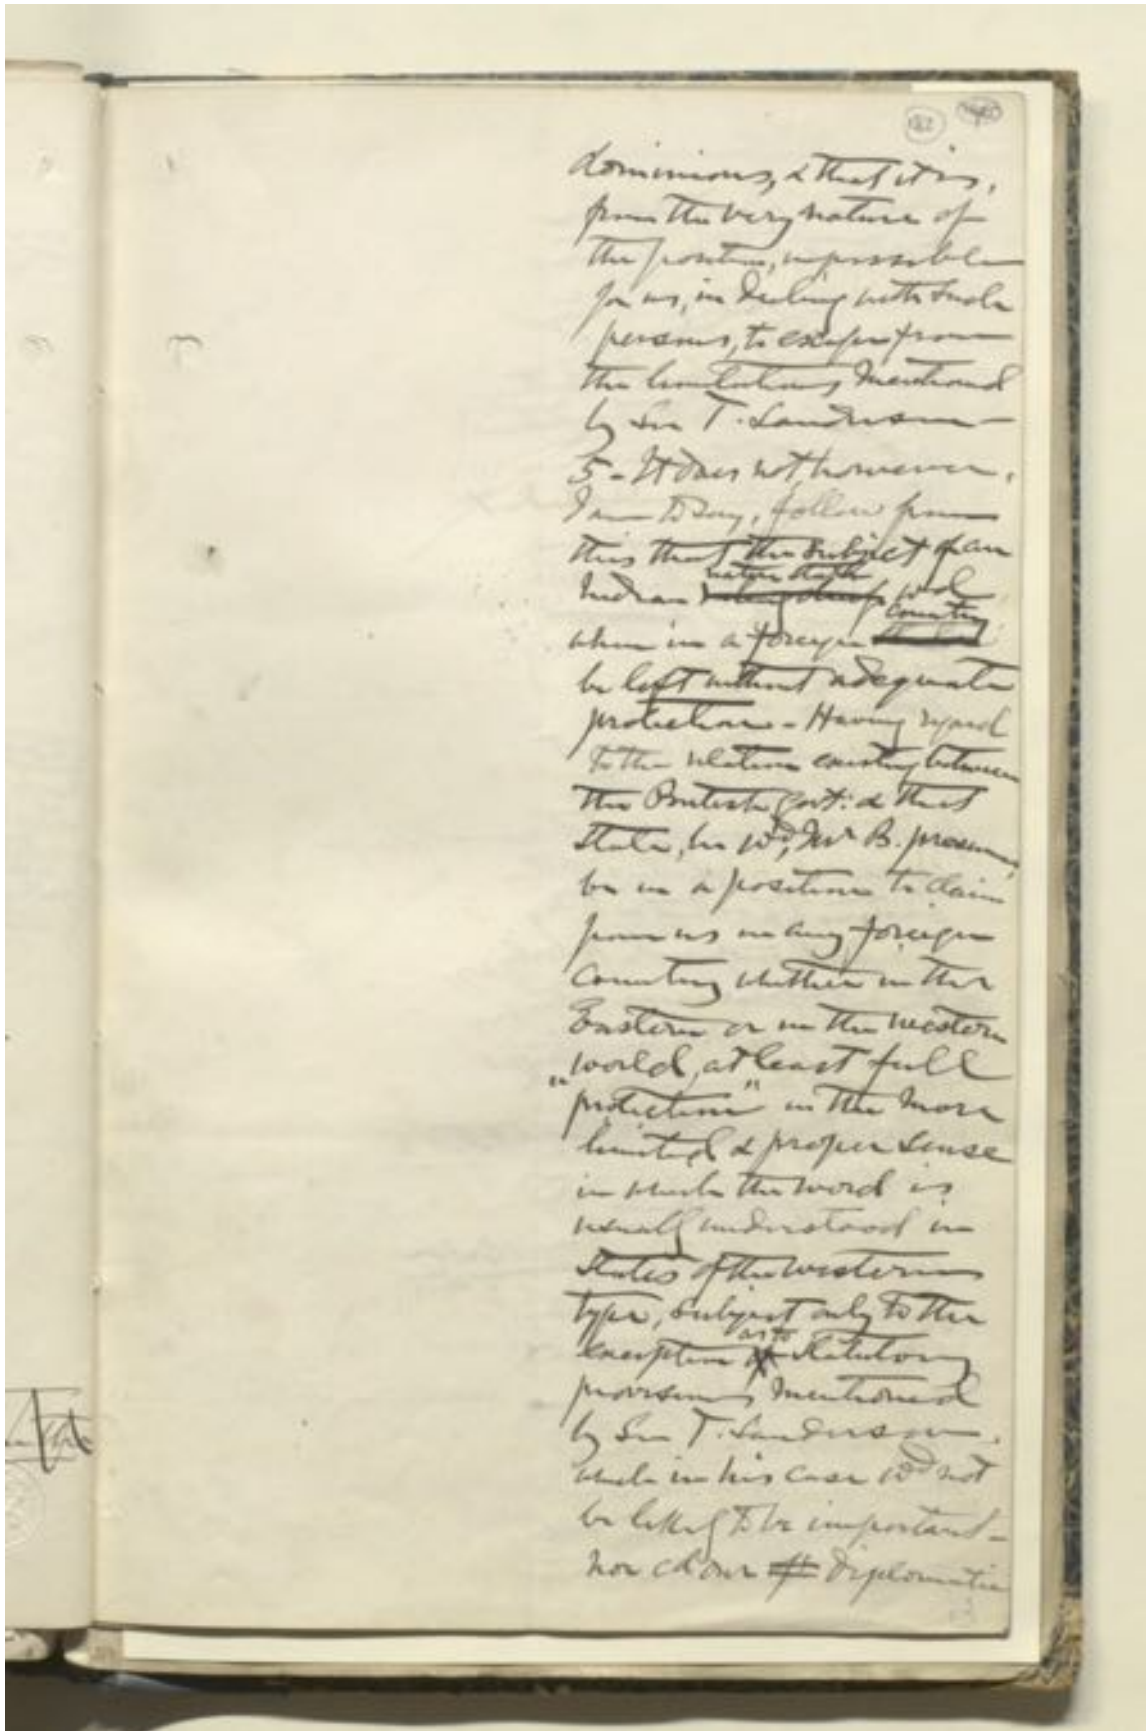 182
dominions, & that it is,
from the very nature of
the position, impossible
for us, in dealing with such
persons, to escape from
the limitations mentioned
by Sir T. Sanderson -
5 - It does not, however,
I am to say, follow from
this that the subject of an
Indian native state wd
when in a foreign country
be left without adequate
protection - Having regard
to the relations existing between
the British Govt: & that
State, he wd, Mr B. presumes,
be in a position to claim
from us in any foreign
country whether in the
Eastern or in the Western
world, at least full
"protection" in the more
limited & proper sense
in which the word is
usually understood in
States of the western
type, subject only to the
exception as to statutory
provisions mentioned
by Sir T. Sanderson,
which in his case wd not
be likely to be important -
Nor cd our diplomatic